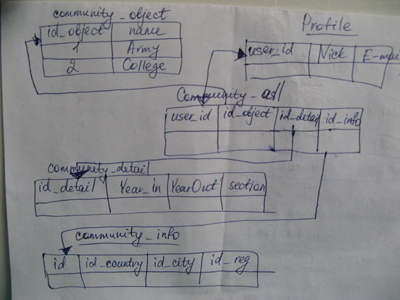 community_object
id_object name
1 Army
2 College
Profile
user_id Nick E-mai
Community_all
user_id id_object id_detai id_info
community_detail
id_detail Year_in YearOut section
community_info
id id_country id_city id_reg